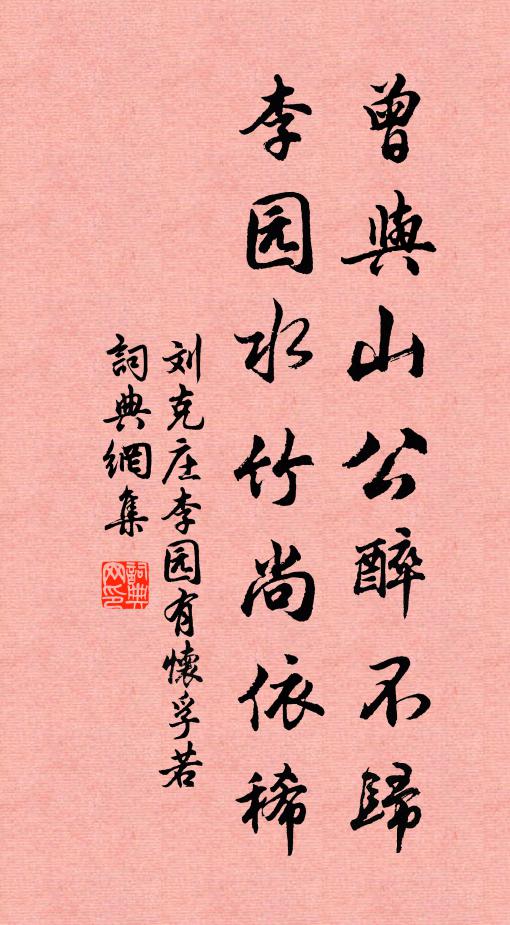 曾與山公醉不歸
李园水竹尚依稀
刘克庄李园有懷孚若
詞典網集
詞典
网印